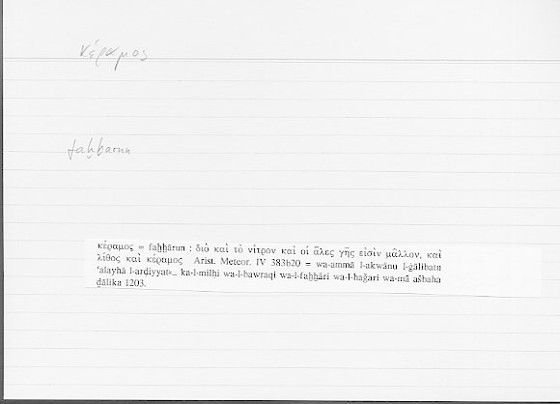 κέραμος
faḫḫarun
κέραμος = faḫḫārun : διὸ καὶ τὸ νίτρον καὶ οἱ ἅλες γῆς εἰσὶν μᾶλλον, καὶ
λίθος καὶ κέραμος Arist. Meteor. IV 383b20 = wa-ammā l-akwānu l-ġālibatu
ʿalayhā l-arḍiyyatu... ka-l-milḥi wa-l-bawraqi wa-l-faḫḫāri wa-l-ḥaǧari wa-mā ašbaha
ḏālika 1203.